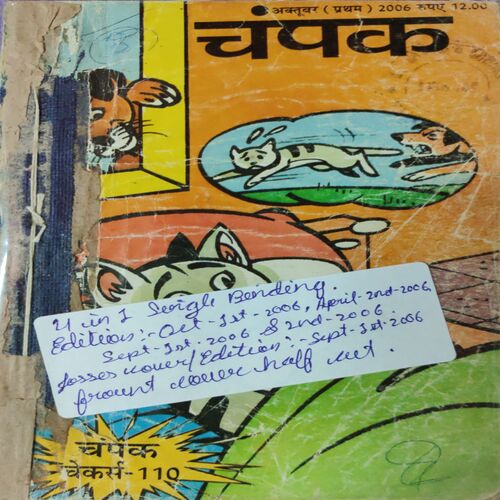 अक्तूबर ( प्रथम ) 2006 रुपए 12.00
चंपक
4 in 1 Seigle Bending
Edition:- Oct-1st-2006, April-2nd-2006,
Sept-1st-2006 & 2nd-2006
losses cover/Edition:- Sept-1st-2006
frount cover half cut.
चंपक
चेकर्स-110